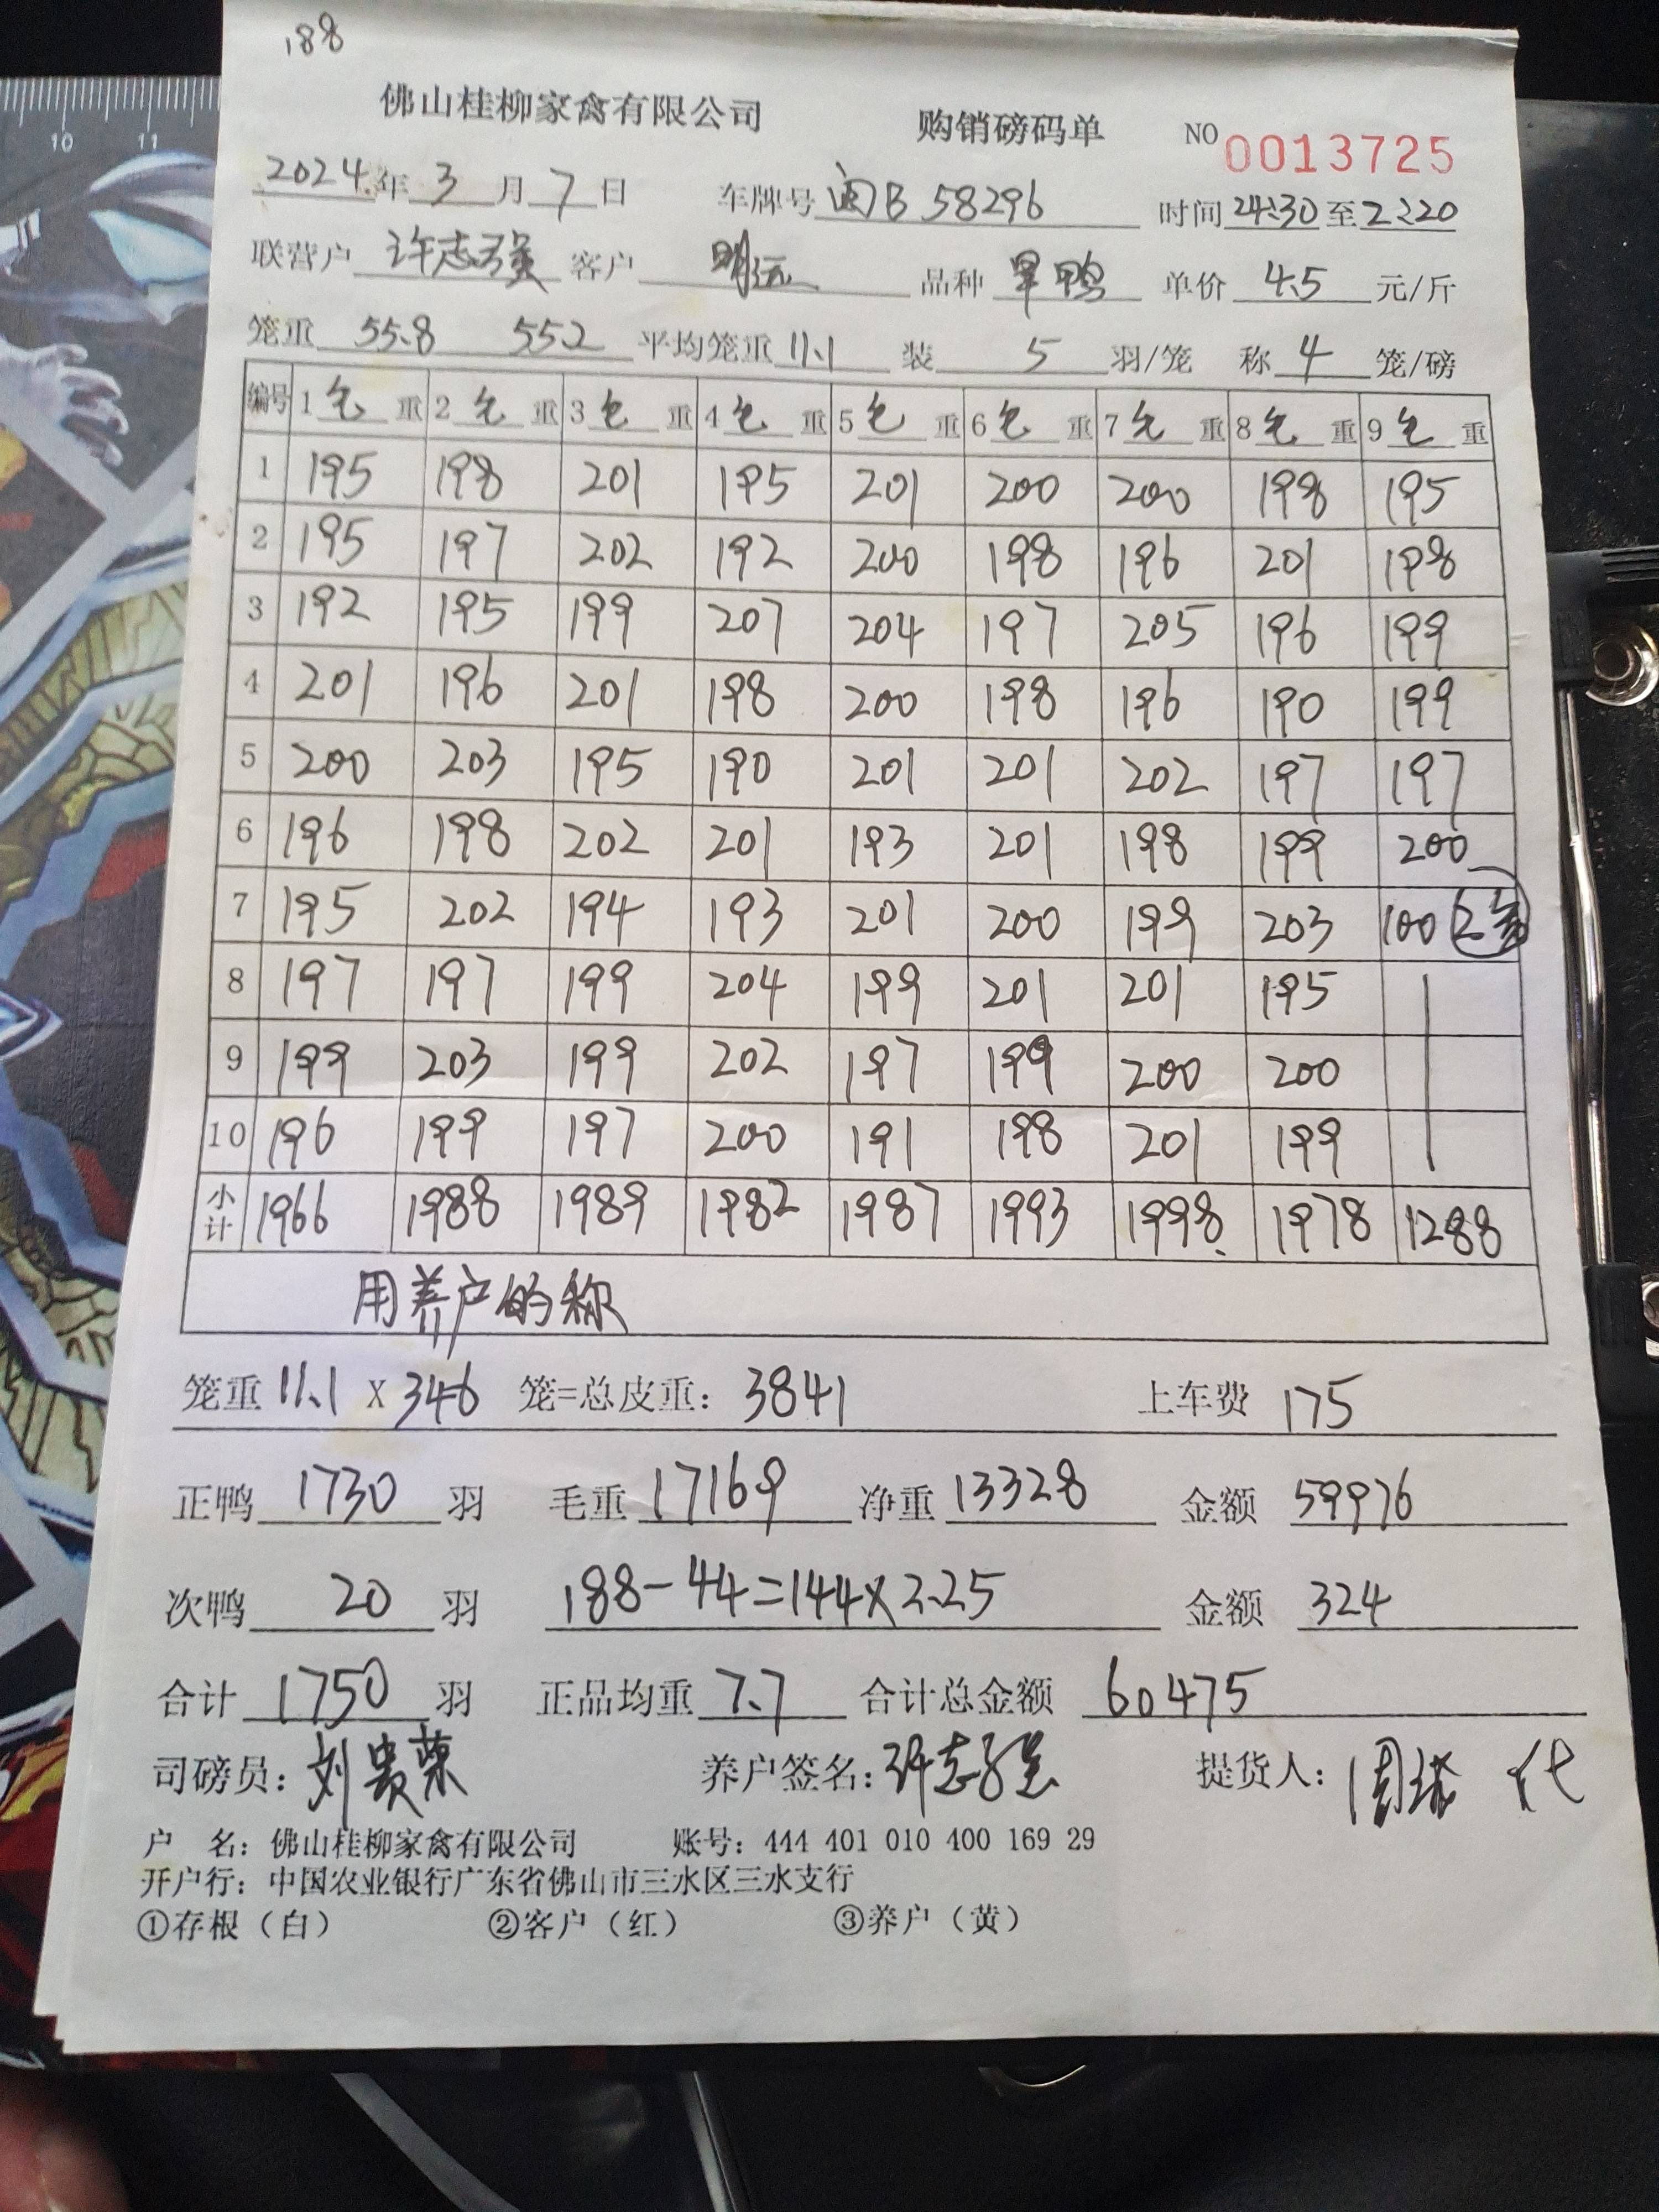 188
佛山桂柳家禽有限公司 购销磅码单 NO 0013725
2024年3月7日 车牌号 闽B 58296 时间 24:30 至 2:20
联营户 许志强 客户 明远 品种 旱鸭 单价 4.5 元/斤
笼重 55.8 55.2 平均笼重 11.1 装 5 羽/笼 称 4 笼/磅
编号 1毛重 2毛重 3毛重 4毛重 5毛重 6毛重 7毛重 8毛重 9毛重
1 195 198 201 195 201 200 200 198 195
2 195 197 202 192 200 198 196 201 198
3 192 195 199 207 204 197 205 196 199
4 201 196 201 198 200 198 196 190 199
5 200 203 195 190 201 201 202 197 197
6 196 198 202 201 193 201 198 199 200
7 195 202 194 193 201 200 199 203 100 2笼
8 197 197 199 204 199 201 201 195
9 199 203 199 202 197 199 200 200
10 196 199 197 200 191 198 201 199
小计 1966 1988 1989 1982 1987 1993 1998 1978 1288
用养户的称
笼重 11.1 X 346 笼=总皮重: 3841 上车费 175
正鸭 1730 羽 毛重 17169 净重 13328 金额 59976
次鸭 20 羽 188-44=144×2.25 金额 324
合计 1750 羽 正品均重 7.7 合计总金额 60475
司磅员: 刘贵荣 养户签名: 许志强 提货人: 周 代
户 名: 佛山桂柳家禽有限公司 账号: 444 401 010 400 169 29
开户行: 中国农业银行广东省佛山市三水区三水支行
①存根（白） ②客户（红） ③养户（黄）
10 11